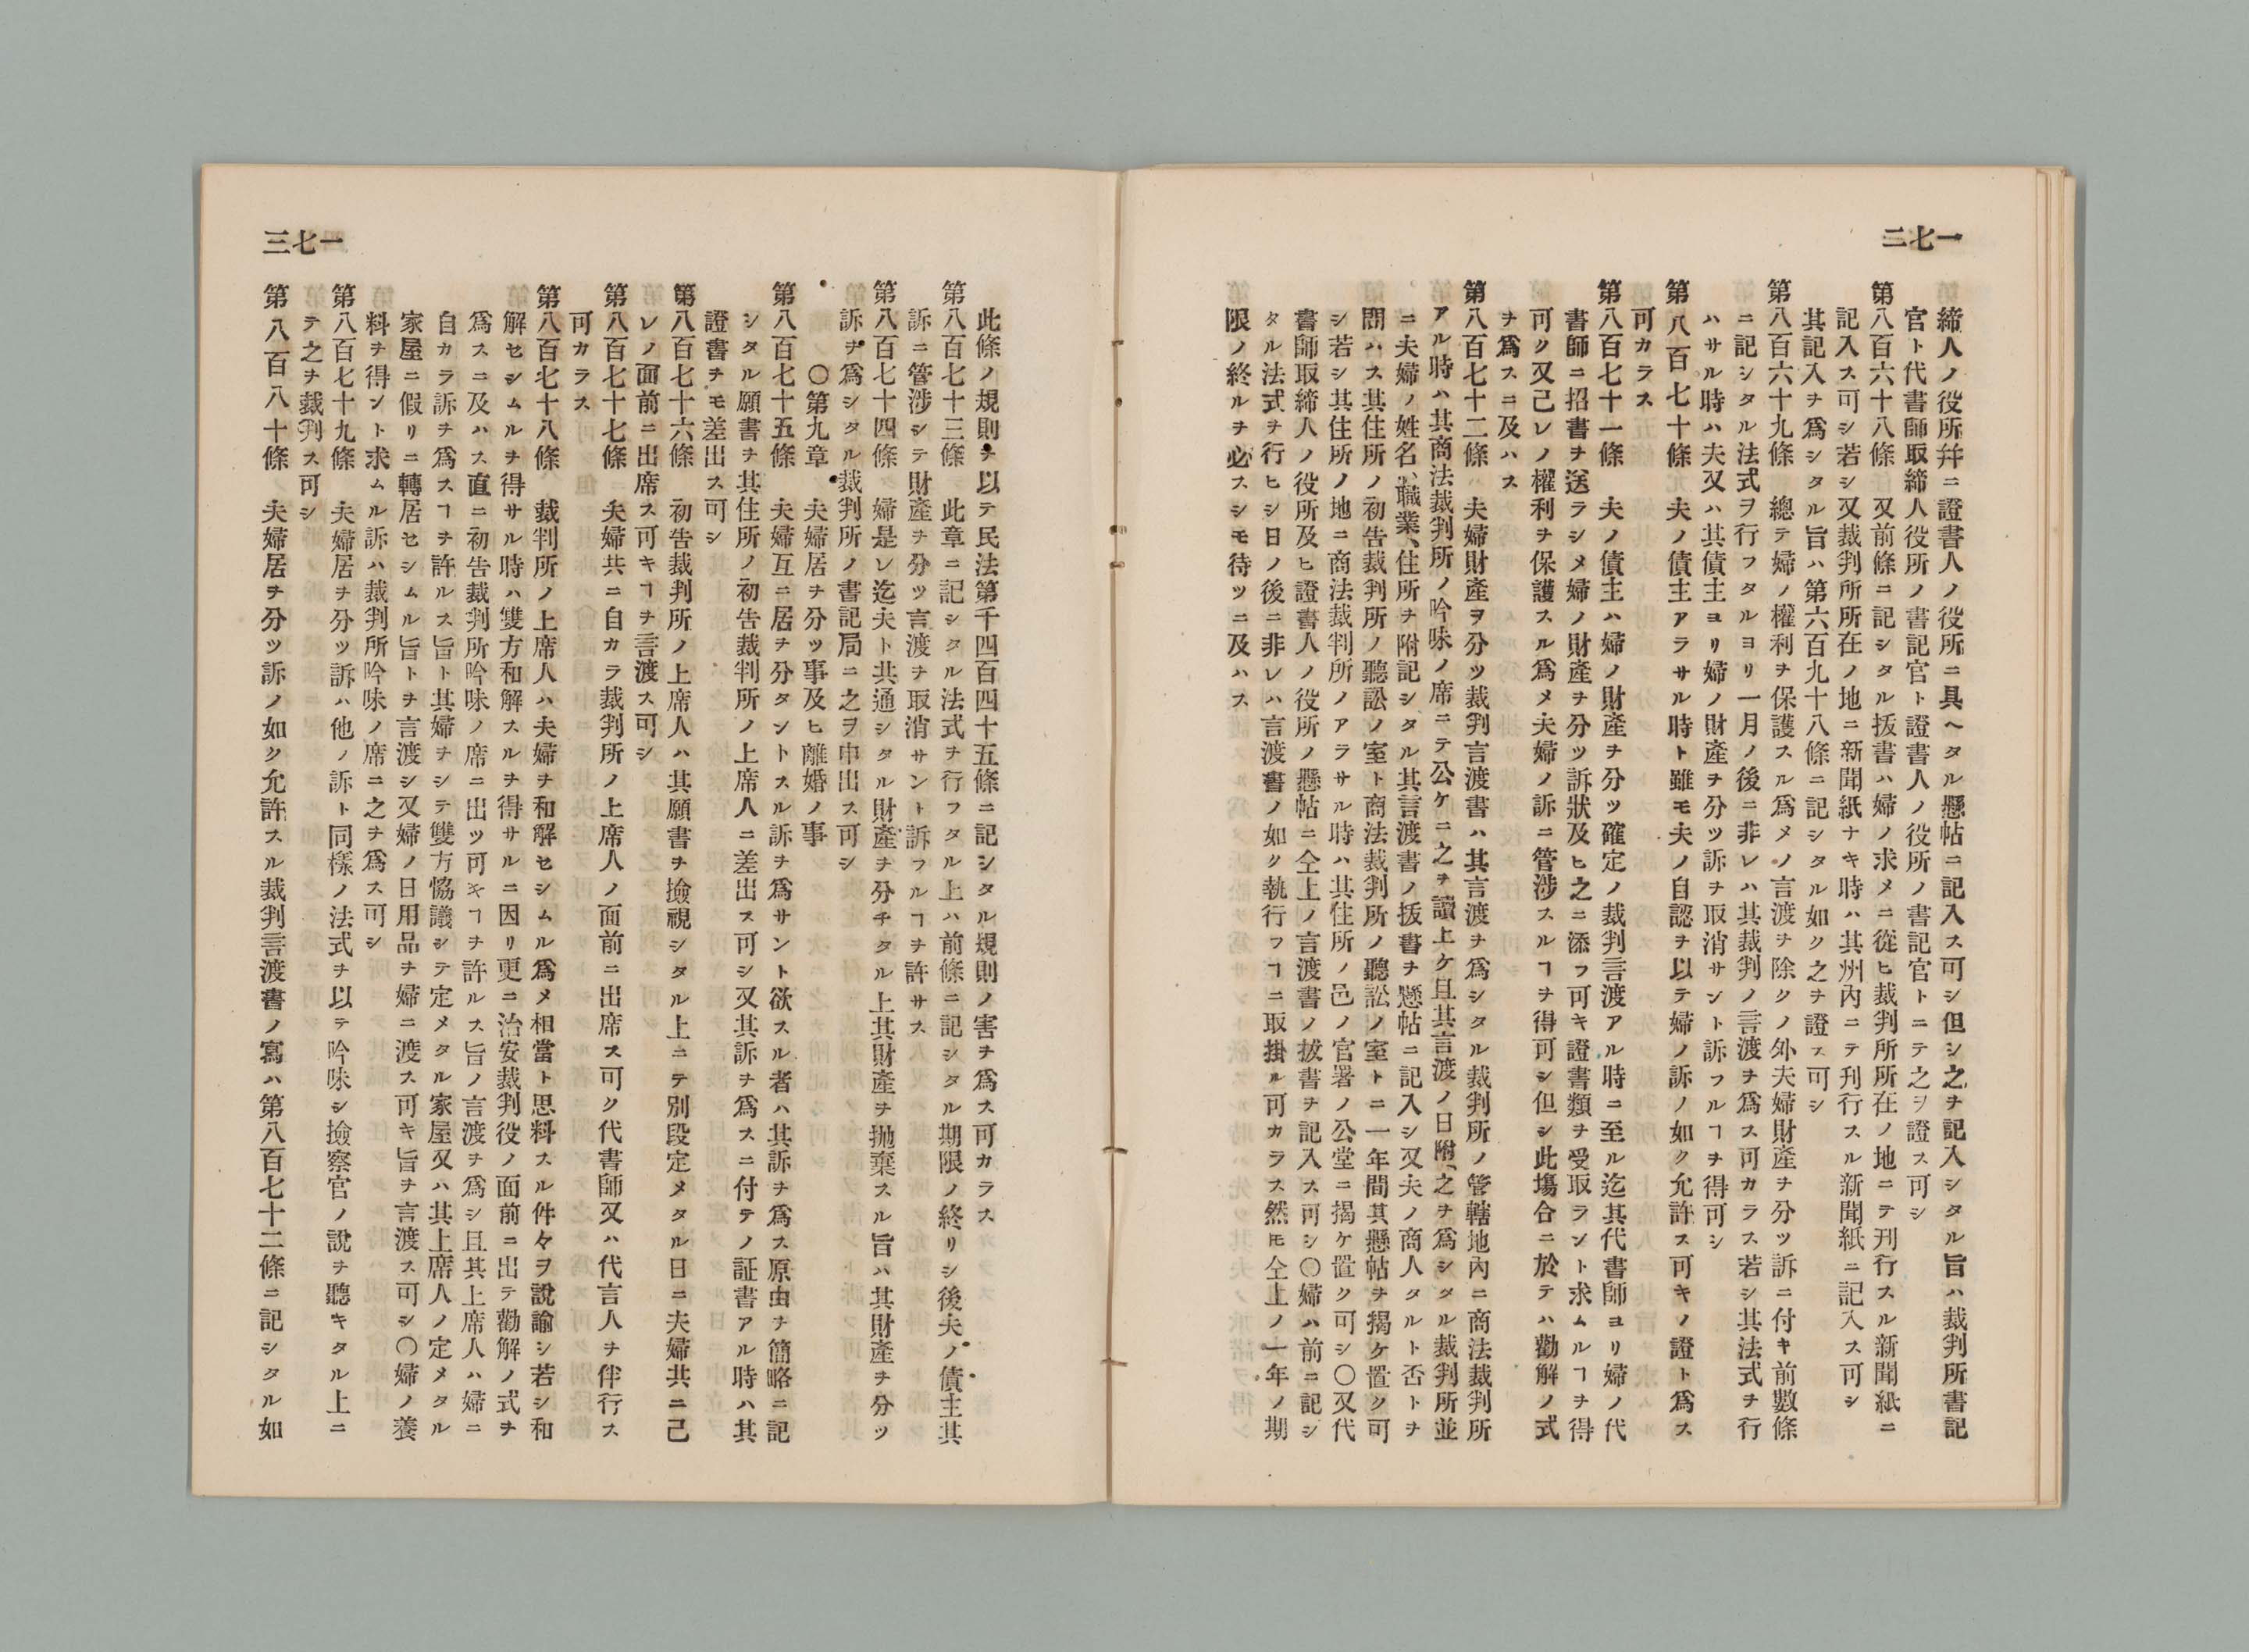 一七二
締人ノ役所幷ニ證書人ノ役所ニ具ヘタル懸帖ニ記入ス可シ但シ之ヲ記入シタル旨ハ裁判所書記
官ト代書師取締人役所ノ書記官ト證書人ノ役所ノ書記官トニテ之ヲ證ス可シ
第八百六十八條　又前條ニ記シタル拔書ハ婦ノ求メニ從ヒ裁判所所在ノ地ニテ刋行スル新聞紙ニ
記入ス可シ若シ又裁判所所在ノ地ニ新聞紙ナキ時ハ其州內ニテ刋行スル新聞紙ニ記入ス可シ
其記入ヲ爲シタル旨ハ第六百九十八條ニ記シタル如ク之ヲ證ス可シ
第八百六十九條　總テ婦ノ權利ヲ保護スル爲メノ言渡ヲ除クノ外夫婦財產ヲ分ツ訴ニ付キ前數條
ニ記シタル法式ヲ行フタルヨリ一月ノ後ニ非レハ其裁判ノ言渡ヲ爲ス可カラス若シ其法式ヲ行
ハサル時ハ夫又ハ其債主ヨリ婦ノ財產ヲ分ツ訴ヲ取消サント訴フルヿヲ得可シ
第八百七十條　夫ノ債主アラサル時ト雖モ夫ノ自認ヲ以テ婦ノ訴ノ如ク允許ス可キノ證ト爲ス
可カラス
第八百七十一條　夫ノ債主ハ婦ノ財產ヲ分ツ確定ノ裁判言渡アル時ニ至ル迄其代書師ヨリ婦ノ代
書師ニ招書ヲ送ラシメ婦ノ財產ヲ分ツ訴狀及ヒ之ニ添フ可キ證書類ヲ受取ラント求ムルヿヲ得
可ク又己レノ權利ヲ保護スル爲メ夫婦ノ訴ニ管涉スルヿヲ得可シ但シ此塲合ニ於テハ勸解ノ式
ヲ爲スニ及ハス
第八百七十二條　夫婦財產ヲ分ツ裁判言渡書ハ其言渡ヲ爲シタル裁判所ノ管轄地內ニ商法裁判所
アル時ハ其商法裁判所ノ吟味ノ席ニテ公ケニ之ヲ讀上ケ且其言渡ノ日附、之ヲ爲シタル裁判所並
ニ夫婦ノ姓名、職業、住所ヲ附記シタル其言渡書ノ拔書ヲ懸帖ニ記入シ又夫ノ商人タルト否トヲ
問ハス其住所ノ初告裁判所ノ聽訟ノ室ト商法裁判所ノ聽訟ノ室トニ一年間其懸帖ヲ揭ケ置ク可
シ若シ其住所ノ地ニ商法裁判所ノアラサル時ハ其住所ノ邑ノ官署ノ公堂ニ揭ケ置ク可シ〇又代
書師取締人ノ役所及ヒ證書人ノ役所ノ懸帖ニ仝上ノ言渡書ノ拔書ヲ記入ス可シ〇婦ハ前ニ記シ
タル法式ヲ行ヒシ日ノ後ニ非レハ言渡書ノ如ク執行フヿニ取掛ル可カラス然モ仝上ノ一年ノ期
限ノ終ルヲ必スシモ待ツニ及ハス
一七三
此條ノ規則ヲ以テ民法第千四百四十五條ニ記シタル規則ノ害ヲ爲ス可カラス
第八百七十三條　此章ニ記シタル法式ヲ行フタル上ハ前條ニ記シタル期限ノ終リシ後夫ノ債主其
訴ニ管涉シテ財產ヲ分ツ言渡ヲ取消サント訴フルヿヲ許サス
第八百七十四條　婦是レ迄夫ト共通シタル財產ヲ分チタル上其財產ヲ抛棄スル旨ハ其財產ヲ分ツ
訴ヲ爲シタル裁判所ノ書記局ニ之ヲ申出ス可シ
〇第九章　夫婦居ヲ分ツ事及ヒ離婚ノ事
第八百七十五條　夫婦互ニ居ヲ分タントスル訴ヲ爲サント欲スル者ハ其訴ヲ爲ス原由ヲ簡略ニ記
シタル願書ヲ其住所ノ初告裁判所ノ上席人ニ差出ス可シ又其訴ヲ爲スニ付テノ証書アル時ハ其
證書ヲモ差出ス可シ
第八百七十六條　初告裁判所ノ上席人ハ其願書ヲ撿視シタル上ニテ別段定メタル日ニ夫婦共ニ己
レノ面前ニ出席ス可キヿヲ言渡ス可シ
第八百七十七條　夫婦共ニ自カラ裁判所ノ上席人ノ面前ニ出席ス可ク代書師又ハ代言人ヲ伴行ス
可カラス
第八百七十八條　裁判所ノ上席人ハ夫婦ヲ和解セシムル爲メ相當ト思料スル件々ヲ說諭シ若シ和
解セシムルヲ得サル時ハ雙方和解スルヲ得サルニ因リ更ニ治安裁判役ノ面前ニ出テ勸解ノ式ヲ
爲スニ及ハス直ニ初告裁判所吟味ノ席ニ出ツ可キヿヲ許ルス旨ノ言渡ヲ爲シ且其上席人ハ婦ニ
自カラ訴ヲ爲スヿヲ許ルス旨ト其婦ヲシテ雙方恊議シテ定メタル家屋又ハ其上席人ノ定メタル
家屋ニ假リニ轉居セシムル旨トヲ言渡シ又婦ノ日用品ヲ婦ニ渡ス可キ旨ヲ言渡ス可シ〇婦ノ養
料ヲ得ント求ムル訴ハ裁判所吟味ノ席ニ之ヲ爲ス可シ
第八百七十九條　夫婦居ヲ分ツ訴ハ他ノ訴ト同樣ノ法式ヲ以テ吟味シ撿察官ノ說ヲ聽キタル上ニ
テ之ヲ裁判ス可シ
第八百八十條　夫婦居ヲ分ツ訴ノ如ク允許スル裁判言渡書ノ寫ハ第八百七十二條ニ記シタル如